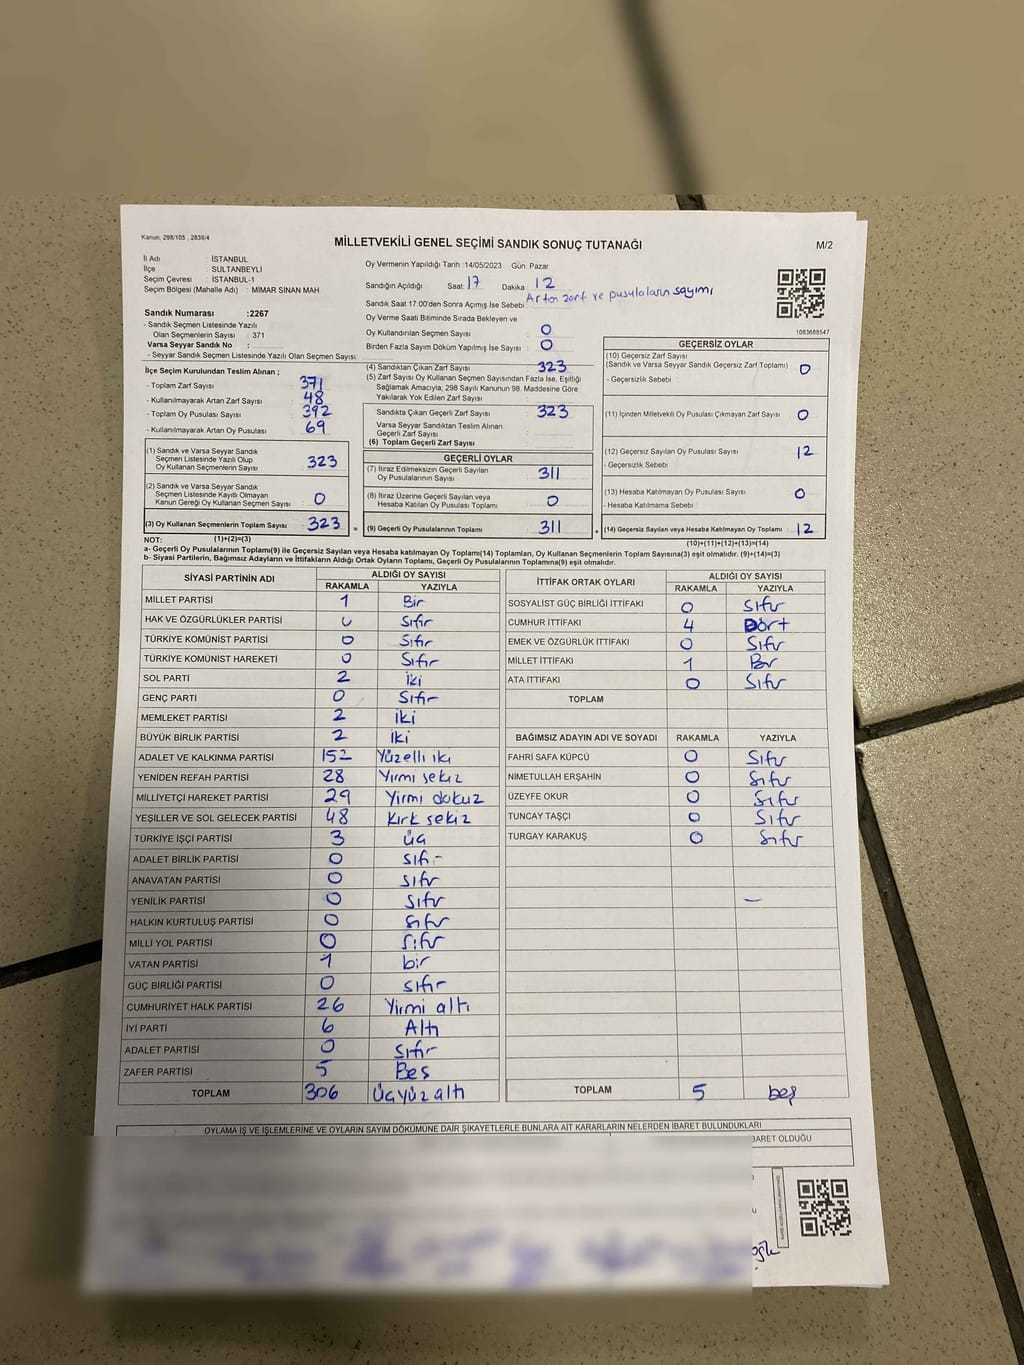 Kanun: 298/105 , 2839/4
MİLLETVEKİLİ GENEL SEÇİMİ SANDIK SONUÇ TUTANAĞI
M/2
İl Adı : İSTANBUL
İlçe : SULTANBEYLİ
Seçim Çevresi : İSTANBUL-1
Seçim Bölgesi (Mahalle Adı) : MIMAR SINAN MAH
Oy Vermenin Yapıldığı Tarih :14/05/2023 Gün: Pazar
Sandığın Açıldığı Saat: 17 Dakika : 12
Sandık Saat 17:00'den Sonra Açımış İse Sebebi Artan zarf ve pusulaların sayımı
Oy Verme Saati Bitiminde Sırada Bekleyen ve
Oy Kullandırılan Seçmen Sayısı 0
Birden Fazla Sayım Döküm Yapılmış İse Sayısı : 0
1083688547
Sandık Numarası :2267
- Sandık Seçmen Listesinde Yazılı
Olan Seçmenlerin Sayısı : 371
Varsa Seyyar Sandık No :
- Seyyar Sandık Seçmen Listesinde Yazılı Olan Seçmen Sayısı:
İlçe Seçim Kurulundan Teslim Alınan ;
- Toplam Zarf Sayısı : 371
- Kullanılmayarak Artan Zarf Sayısı : 48
- Toplam Oy Pusulası Sayısı : 392
- Kullanılmayarak Artan Oy Pusulası : 69
(1) Sandık ve Varsa Seyyar Sandık
Seçmen Listesinde Yazılı Olup
Oy Kullanan Seçmenlerin Sayısı : 323
(2) Sandık ve Varsa Seyyar Sandık
Seçmen Listesinde Kayıtlı Olmayan
Kanun Gereği Oy Kullanan Seçmen Sayısı : 0
(3) Oy Kullanan Seçmenlerin Toplam Sayısı : 323 =
(1)+(2)=(3)
(4) Sandıktan Çıkan Zarf Sayısı : 323
(5) Zarf Sayısı Oy Kullanan Seçmen Sayısından Fazla İse, Eşitliği
Sağlamak Amacıyla; 298 Sayılı Kanunun 98. Maddesine Göre
Yakılarak Yok Edilen Zarf Sayısı :
Sandıkta Çıkan Geçerli Zarf Sayısı : 323
Varsa Seyyar Sandıktan Teslim Alınan
Geçerli Zarf Sayısı :
(6) Toplam Geçerli Zarf Sayısı :
GEÇERLİ OYLAR
(7) İtiraz Edilmeksizin Geçerli Sayılan
Oy Pusulalarının Sayısı : 311
(8) İtiraz Üzerine Geçerli Sayılan veya
Hesaba Katılan Oy Pusulası Toplamı : 0
(9) Geçerli Oy Pusulalarının Toplamı : 311 +
GEÇERSİZ OYLAR
(10) Geçersiz Zarf Sayısı
(Sandık ve Varsa Seyyar Sandık Geçersiz Zarf Toplamı) : 0
- Geçersizlik Sebebi :
(11) İçinden Milletvekili Oy Pusulası Çıkmayan Zarf Sayısı : 0
(12) Geçersiz Sayılan Oy Pusulası Sayısı : 12
- Geçersizlik Sebebi :
(13) Hesaba Katılmayan Oy Pusulası Sayısı : 0
- Hesaba Katılmama Sebebi :
(14) Geçersiz Sayılan veya Hesaba Katılmayan Oy Toplamı : 12
(10)+(11)+(12)+(13)=(14)
NOT:
a- Geçerli Oy Pusulalarının Toplamı(9) ile Geçersiz Sayılan veya Hesaba katılmayan Oy Toplamı(14) Toplamları, Oy Kullanan Seçmenlerin Toplam Sayısına(3) eşit olmalıdır. (9)+(14)=(3)
b- Siyasi Partilerin, Bağımsız Adayların ve İttifakların Aldığı Ortak Oyların Toplamı, Geçerli Oy Pusulalarının Toplamına(9) eşit olmalıdır.
SİYASİ PARTİNİN ADI ALDIĞI OY SAYISI
RAKAMLA YAZIYLA
MİLLET PARTİSİ 1 Bir
HAK VE ÖZGÜRLÜKLER PARTİSİ 0 Sıfır
TÜRKİYE KOMÜNİST PARTİSİ 0 Sıfır
TÜRKİYE KOMÜNİST HAREKETİ 0 Sıfır
SOL PARTİ 2 iki
GENÇ PARTİ 0 Sıfır
MEMLEKET PARTİSİ 2 iki
BÜYÜK BİRLİK PARTİSİ 2 iki
ADALET VE KALKINMA PARTİSİ 152 Yüzelli iki
YENİDEN REFAH PARTİSİ 28 Yirmi sekiz
MİLLİYETÇİ HAREKET PARTİSİ 29 Yirmi dokuz
YEŞİLLER VE SOL GELECEK PARTİSİ 48 Kırk sekiz
TÜRKİYE İŞÇİ PARTİSİ 3 üç
ADALET BİRLİK PARTİSİ 0 sıfır
ANAVATAN PARTİSİ 0 sıfır
YENİLİK PARTİSİ 0 sıfır
HALKIN KURTULUŞ PARTİSİ 0 sıfır
MİLLİ YOL PARTİSİ 0 sıfır
VATAN PARTİSİ 1 bir
GÜÇ BİRLİĞİ PARTİSİ 0 sıfır
CUMHURİYET HALK PARTİSİ 26 Yirmi altı
İYİ PARTİ 6 Altı
ADALET PARTİSİ 0 sıfır
ZAFER PARTİSİ 5 Beş
TOPLAM 306 Üçyüz altı
İTTİFAK ORTAK OYLARI ALDIĞI OY SAYISI
RAKAMLA YAZIYLA
SOSYALİST GÜÇ BİRLİĞİ İTTİFAKI 0 sıfır
CUMHUR İTTİFAKI 4 Dört
EMEK VE ÖZGÜRLÜK İTTİFAKI 0 Sıfır
MİLLET İTTİFAKI 1 Bir
ATA İTTİFAKI 0 Sıfır
TOPLAM
BAĞIMSIZ ADAYIN ADI VE SOYADI RAKAMLA YAZIYLA
FAHRİ SAFA KÜPCÜ 0 Sıfır
NİMETULLAH ERŞAHİN 0 Sıfır
ÜZEYFE OKUR 0 Sıfır
TUNCAY TAŞÇI 0 Sıfır
TURGAY KARAKUŞ 0 Sıfır
TOPLAM 5 beş
OYLAMA İŞ VE İŞLEMLERİNE VE OYLARIN SAYIM DÖKÜMÜNE DAİR ŞİKAYETLERLE BUNLARA AİT KARARLARIN NELERDEN İBARET BULUNDUKLARI
BARET OLDUĞU